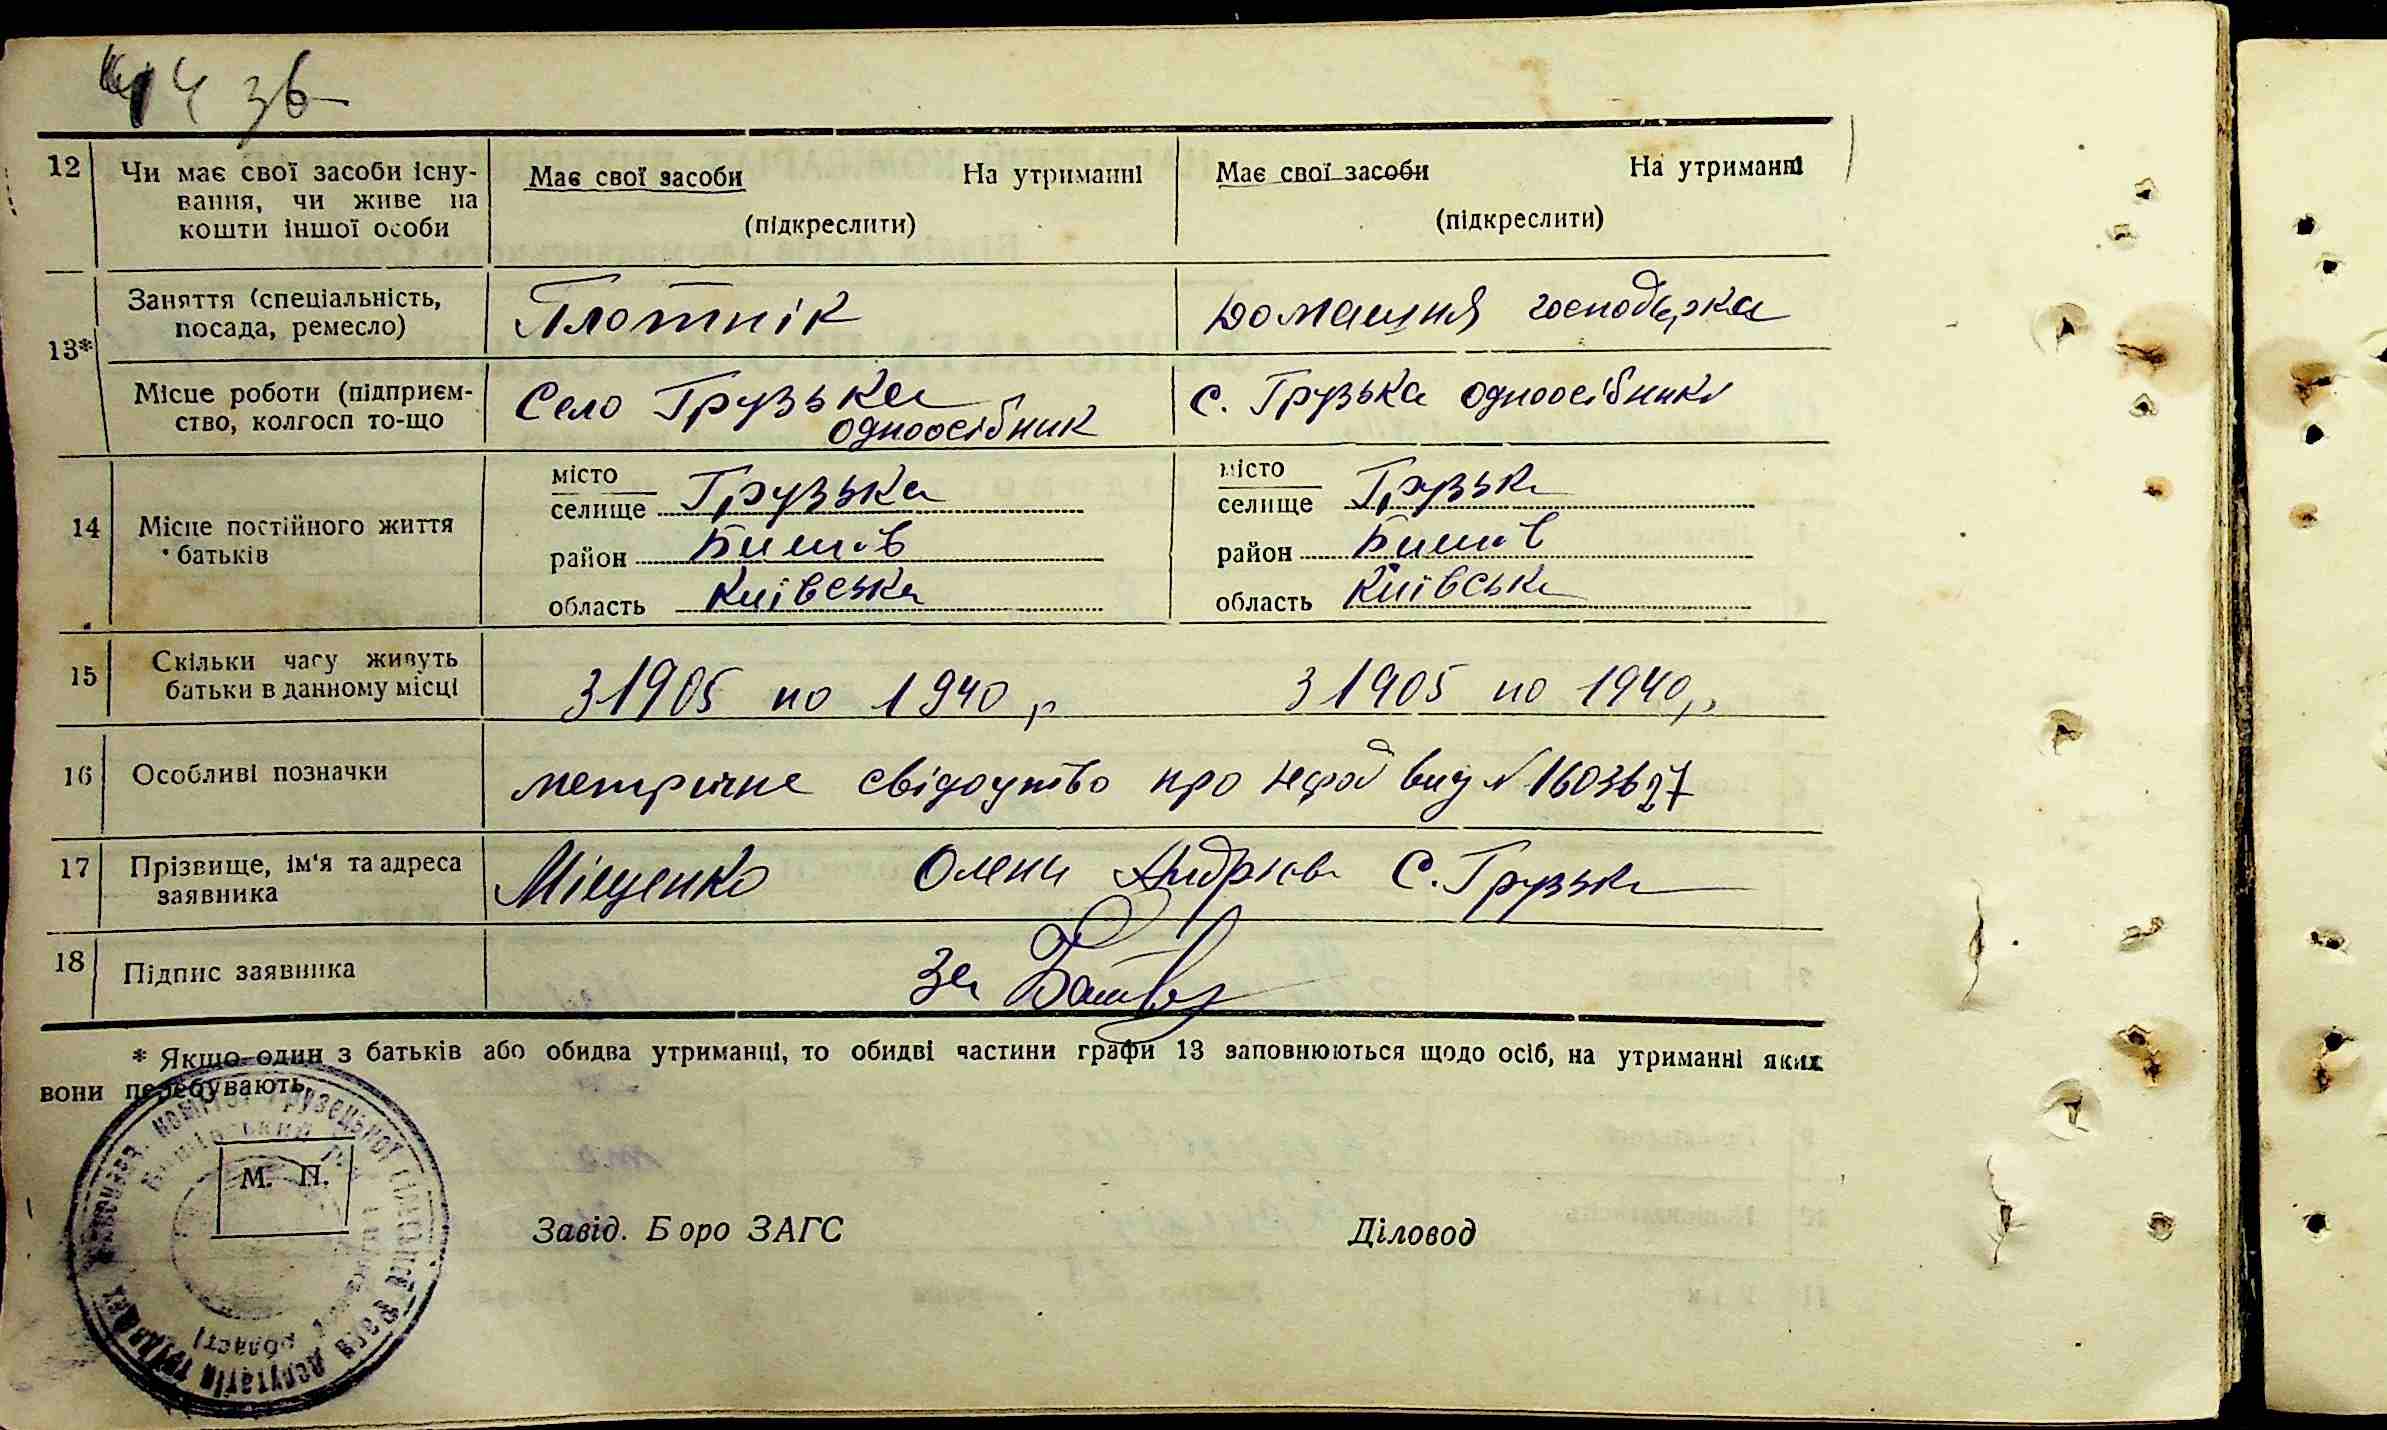 44 зв
12 Чи має свої засоби існу- Має свої засоби На утриманні Має свої засоби На утриманні
вання, чи живе на (підкреслити) (підкреслити)
кошти іншої особи
13* Заняття (спеціальність, Плотнік Домашня господарка
посада, ремесло)
Місце роботи (підприєм- Село Грузька С. Грузька одноосібники
ство, колгосп то-що одноосібник
14 Місце постійного життя місто Грузька місто Грузька
батьків селище селище
район Бишов район Бишов
область Київська область Київська
15 Скільки часу живуть З 1905 по 1940 р З 1905 по 1940 р.
батьки в данному місці
16 Особливі позначки метричне свідоцтво про видр N 1603627
17 Прізвище, ім'я та адреса Міщенко Олени Андрієв С. Грузька
заявника
18 Підпис заявника За
* Якщо один з батьків або обидва утриманці, то обидві частини графи 13 заповнюються щодо осіб, на утриманні яких
вони перебувають.
М. П.
Грузецької сільської ради депутатів трудящих
області
Завід. Бюро ЗАГС Діловод